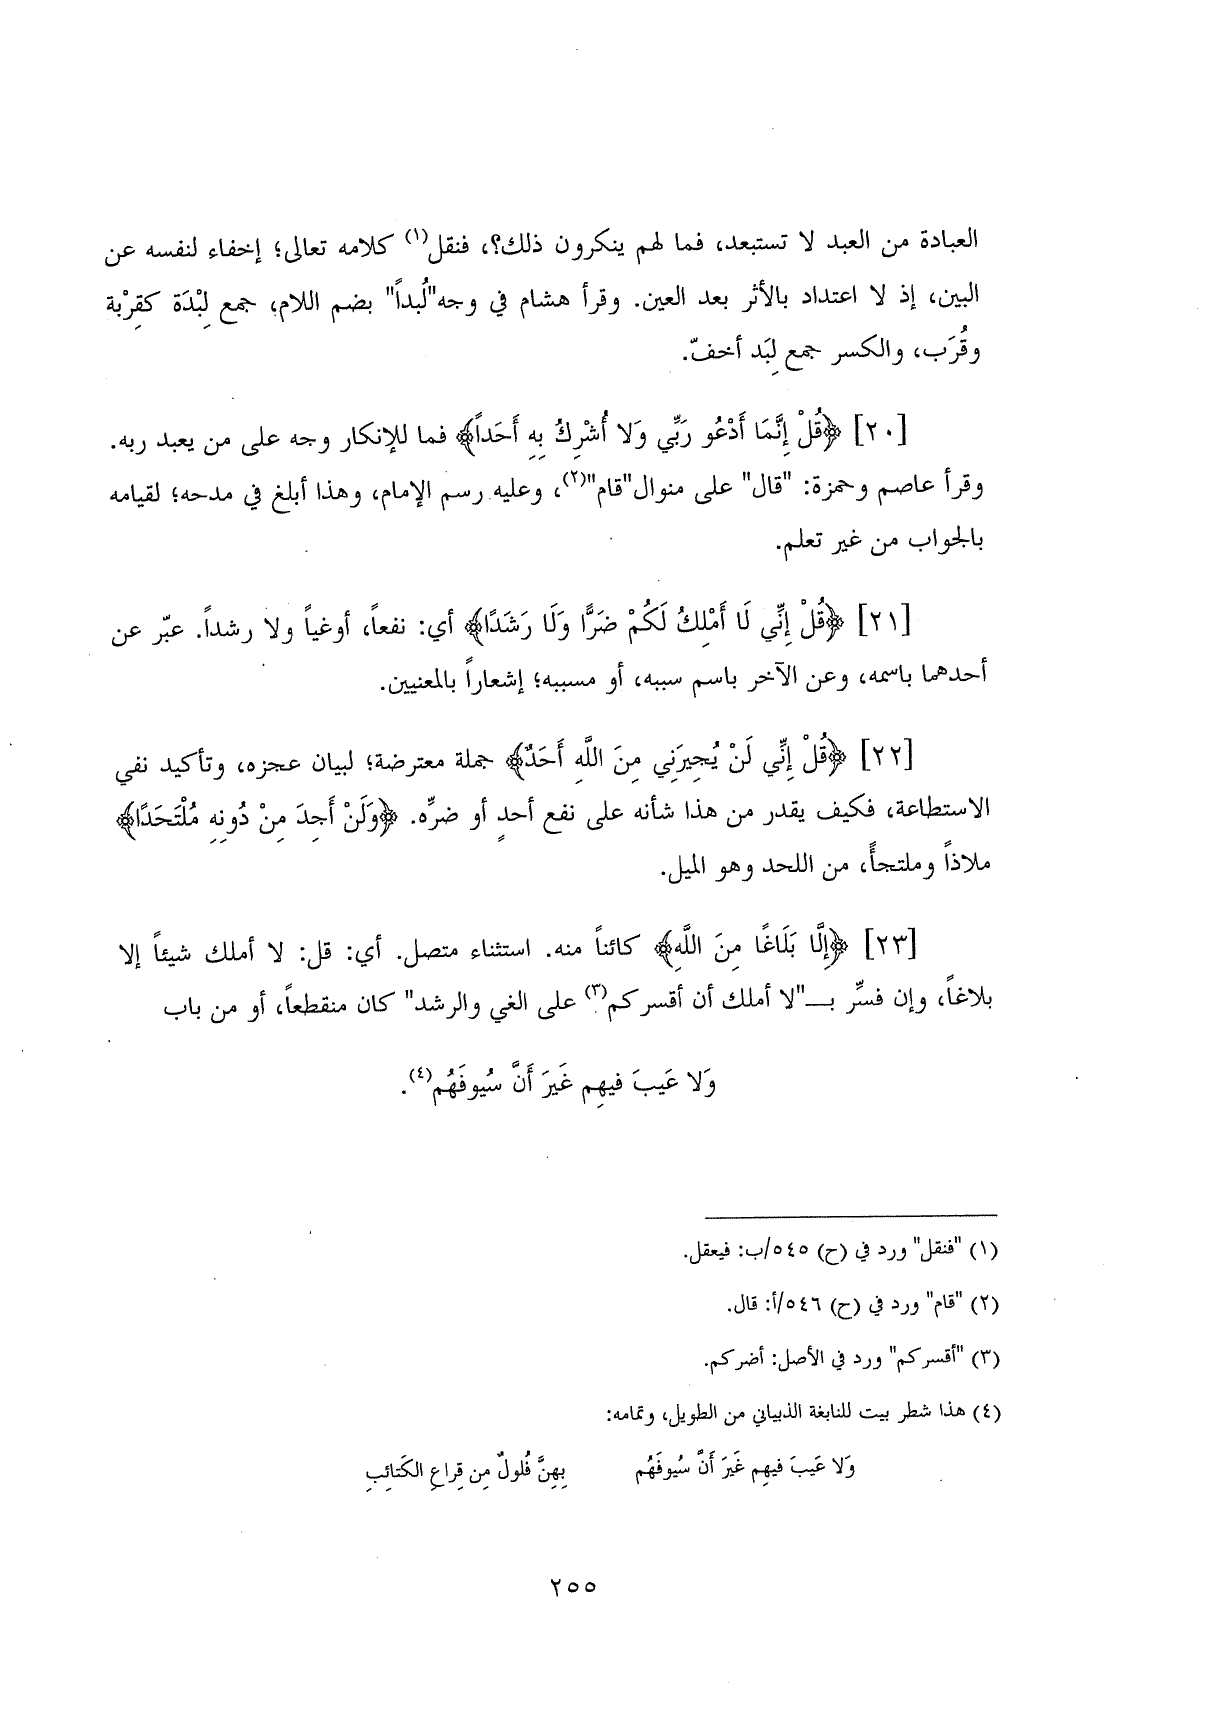 العبادة من العبد لا تستبعد، فما لهم ينكرون ذلك؟، فنقل(١) كلامه تعالى؛ إخفاء لنفسه عن
البين، إذ لا اعتداد بالأثر بعد العين. وقرأ هشام في وجه"لُبداً" بضم اللام، جمع لِبْدَة كقِرْبة
وقُرَب، والكسر جمع لِبَد أخفّ.
[٢٠] ﴿قُلْ إِنَّمَا أَدْعُو رَبِّي وَلا أُشْرِكُ بِهِ أَحَداً﴾ فما للإنكار وجه على من يعبد ربه.
وقرأ عاصم وحمزة: "قال" على منوال"قام"(٢)، وعليه رسم الإمام، وهذا أبلغ في مدحه؛ لقيامه
بالجواب من غير تعلم.
[٢١] ﴿قُلْ إِنِّي لَا أَمْلِكُ لَكُمْ ضَرًّا وَلَا رَشَدًا﴾ أي: نفعاً، أوغياً ولا رشداً. عبّر عن
أحدهما باسمه، وعن الآخر باسم سببه، أو مسببه؛ إشعاراً بالمعنيين.
[٢٢] ﴿قُلْ إِنِّي لَنْ يُجِيرَنِي مِنَ اللَّهِ أَحَدٌ﴾ جملة معترضة؛ لبيان عجزه، وتأكيد نفي
الاستطاعة، فكيف يقدر من هذا شأنه على نفع أحدٍ أو ضرِّه. ﴿وَلَنْ أَجِدَ مِنْ دُونِهِ مُلْتَحَدًا﴾
ملاذاً وملتجأً، من اللحد وهو الميل.
[٢٣] ﴿إِلَّا بَلَاغًا مِنَ اللَّهِ﴾ كائناً منه. استثناء متصل. أي: قل: لا أملك شيئاً إلا
بلاغاً، وإن فسِّر بــ"لا أملك أن أقسركم(٣) على الغي والرشد" كان منقطعاً، أو من باب
وَلا عَيبَ فيهِم غَيرَ أَنَّ سُيوفَهُم(٤).
(١) "فنقل" ورد في (ح) ٥٤٥/ب: فيعقل.
(٢) "قام" ورد في (ح) ٥٤٦/أ: قال.
(٣) "أقسركم" ورد في الأصل: أضركم.
(٤) هذا شطر بيت للنابغة الذبياني من الطويل، وتمامه:
وَلا عَيبَ فيهِم غَيرَ أَنَّ سُيوفَهُم بِهِنَّ فُلولٌ مِن قِراعِ الكَتائِبِ
٢٥٥